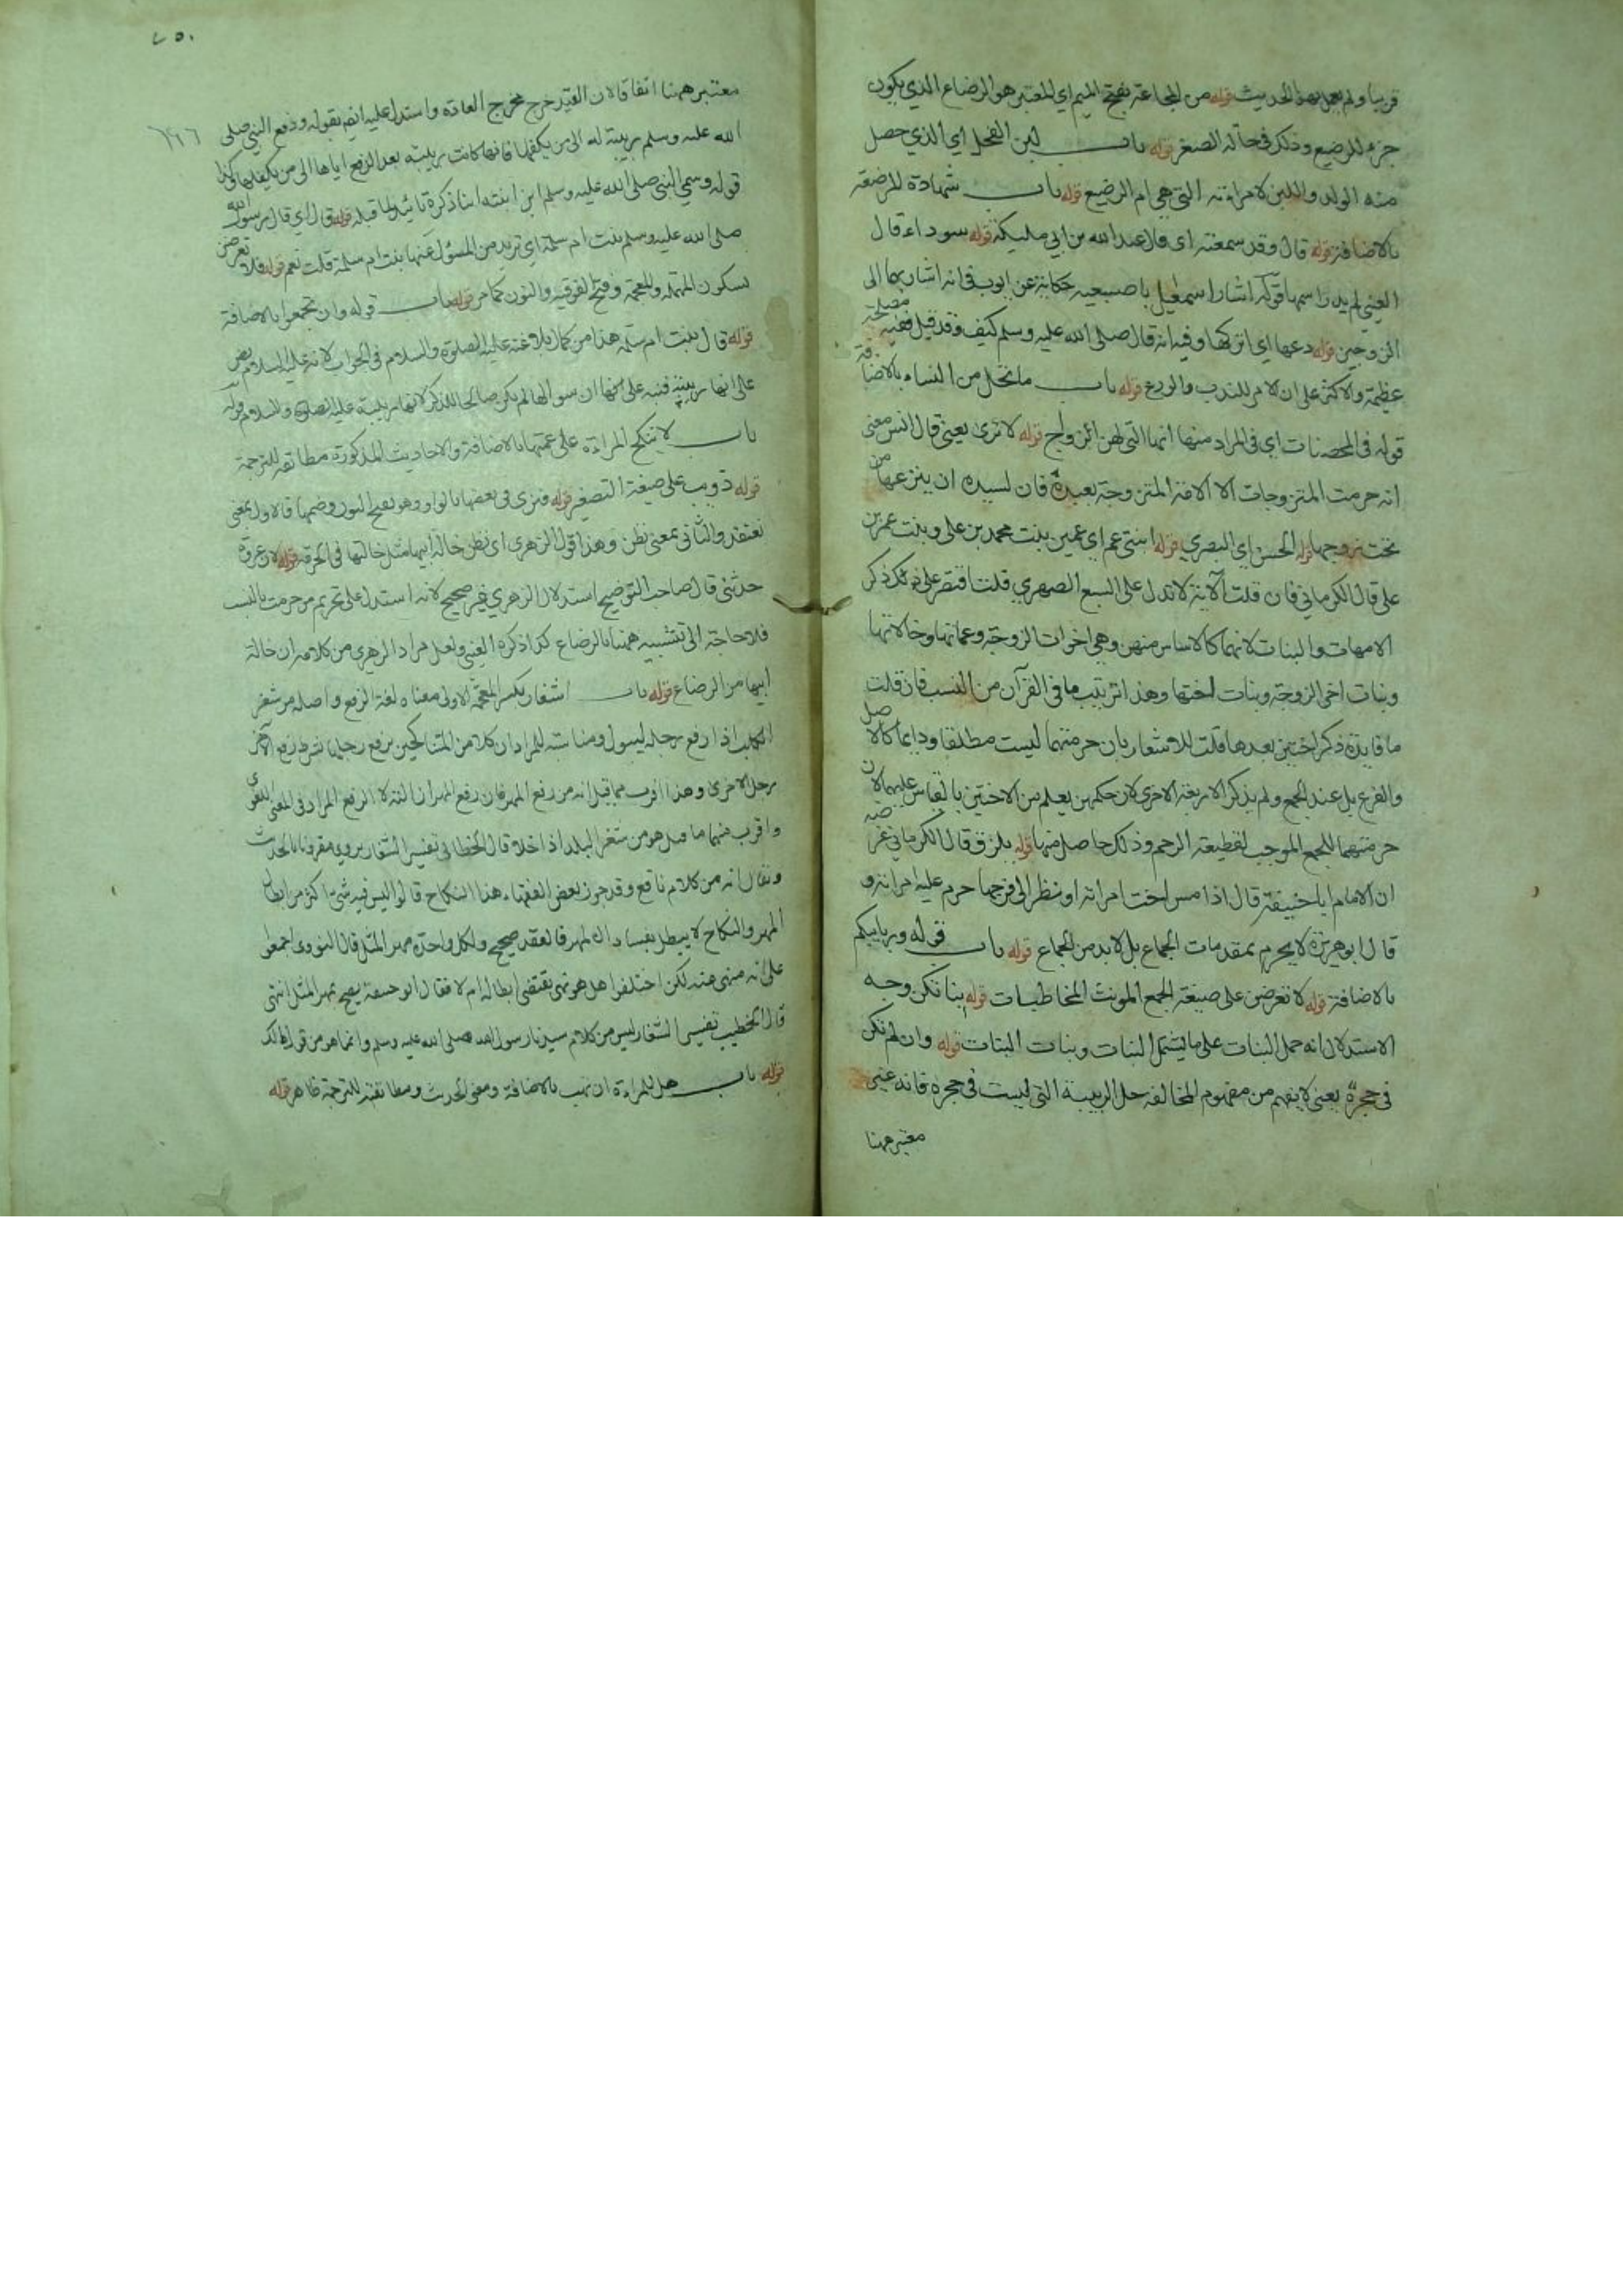 قريبا ولم يعمل بهذا الحديث قوله من المجاعة بفتح الميم اي المعتبر هو الرضاع الذي يكون
جزء للرضيع وذلك في حالة الصغر قوله باب لبن الفحل اي الذي حصل
منه الولد واللبن لامرأته التي هي ام الرضيع قوله باب شهادة المرضعة
بالاضافة قوله قال وقد سمعته اى قال عبد الله بن ابي مليكة قوله سوداء قال
العيني لم يدر اسمها قوله اشار اسمعيل باصبعيه حكاية عن ايوب في انه اشار بهما الى
الزوجين قوله دعها اي اتركها وفيه انه قال صلى الله عليه وسلم كيف وقد قيل ففيه مصلحة
عظيمة والاكثر على ان الامر للندب والورع قوله باب ما يحل من النساء بالاضافة
قوله في المحصنات اي في المراد منها انها التي لهن ازواج قوله لا ترى يعني قال انس معنى
انه حرمت المتزوجات الا الامة المتزوجة بعبده فان لسيده ان ينزعها من
تحت زوجها قوله الحسن اي البصري قوله ابنتي عم اي عمين بنت محمد بن علي وبنت عمر بن
علي قال الكرماني فان قلت الآية لا تدل على السبع الصهري قلت اقتصر على ذلك ذكر
الامهات والبنات لانهما كالاساس منهن وهي اخوات الزوجة وعماتها وخالاتها
وبنات اخي الزوجة وبنات اختها وهذا ترتيب ما في القرآن من النسب فان قلت
ما فايدة ذكر الاختين بعدها قلت للاشعار بان حرمتهما ليست مطلقا ودايما كالاصل
والفرع بل عند الجمع ولم يذكر الاربعة الاخرى لان حكمهن يعلم من الاختين بالقياس عليهما لان
حرمتهما للجمع الموجب لقطيعة الرحم وذلك حاصل منها قوله يلزق قال الكرماني غرضه
ان الامام ابا حنيفة قال اذا مس اخت امراته او نظر الى فرجها حرم عليه امراته و
قال ابو هريرة لا يحرم بمقدمات الجماع بل لا بد من الجماع قوله باب قوله وربايبكم
بالاضافة قوله لا تعرضن على صيغة الجمع المونث المخاطبات قوله بناتكن وجه
الاستدلال انه حمل البنات على ما يشتمل البنات وبنات البنات قوله وان لم تكن
في حجره يعني لا يفهم من مفهوم المخالفة حل الربيبة التي ليست في حجره فانه غير
معتبر ههنا
٧٥٠
معتبر ههنا اتفاقا لان القيد خرج مخرج العادة واستدل عليه ايضا بقوله ودفع النبي صلى
الله عليه وسلم ربيبة له الى من يكفلها فانها كانت ربيبته بعد الدفع اياها الى من يكفلها وكذا
قوله وسمى النبي صلى الله عليه وسلم ابن ابنته ابنا ذكره تائيدا لما قبله قوله قال اي قال رسول الله
صلى الله عليه وسلم بنت ام سلمة اي تريد من المسؤل عنها بنت ام سلمة قلت نعم قوله فلا تعرضن
بسكون المهملة والمعجمة وفتح الفوقية والنون كما مر قوله باب قوله وان تجمعوا بالاضافة
قوله قال بنت ام سلمة هذا من كمال بلاغته عليه الصلوة والسلام في الجواب لانه عليه السلام نص
على انها ربيبته فنبه على انها ان سوالها لم يكن صالحا للذكر لانها ربيبته عليه الصلوة والسلام قوله
باب لا ينكح المراءة على عمتها بالاضافة والاحاديث المذكورة مطابقة للترجمة
قوله ذويب على صيغة التصغير قوله فنرى في بعضها بالواو وهو بفتح النون وضمها فالاول بمعنى
نعتقد والثاني بمعنى نظن وهذا قول الزهري اى نظن خالة ابيها مثل خالتها في الحرمة قوله لان عروة
حدثني قال صاحب التوضيح استدلال الزهري غير صحيح لانه استدل على تحريم من حرمت بالنسب
فلا حاجة الى تشبيه ههنا بالرضاع كذا ذكره العيني ولعل مراد الزهري من كلامه ان خالة
ابيها من الرضاع قوله باب الشغار بكسر المعجمة الاولى معناه لغة الرفع واصله من شغر
الكلب اذا رفع رجله ليبول ومناسبته للمراد ان كلا من المتناكحين يرفع رجلها بشرط رفع الآخر
رجل الاخرى وهذا اقرب مما قيل انه من رفع المهر فان رفع المهر ازالته لا الرفع المراد في المعنى اللغوي
واقرب منهما ما قيل هو من شغر البلد اذا خلا قال الخطابي تفسير الشغار يروى مقرونا بالحديث
ويقال انه من كلام نافع وقد جوز بعض الفقهاء هذا النكاح قالوا ليس فيه شيء اكثر من ابطال
المهر والنكاح لا يبطل بفساد المهر فالعقد صحيح ولكل واحدة مهر المثل قال النووي اجمعوا
على انه منهي عنه لكن اختلفوا هل هو نهي يقتضي ابطاله ام لا فقال ابو حنيفة يصح بمهر المثل انتهى
قال الخطيب تفسير الشغار ليس من كلام سيدنا رسول الله صلى الله عليه وسلم وانما هو من قول مالك
قوله باب هل للمراءة ان تهب بالاضافة ومعنى الحديث ومطابقته للترجمة ظاهر قوله